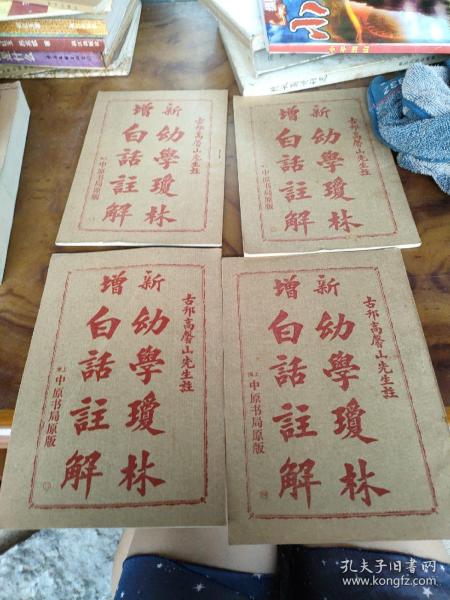 新增
幼學瓊林
白話註解
古邗高馨山先生註
中原书局原版
新增
幼學瓊林
白話註解
古邗高馨山先生註
中原书局原版
新增
幼學瓊林
白話註解
古邗高馨山先生註
上海中原书局原版
新增
幼學瓊林
白話註解
古邗高馨山先生註
上海中原书局原版
孔夫子旧书网
www.kongfz.com